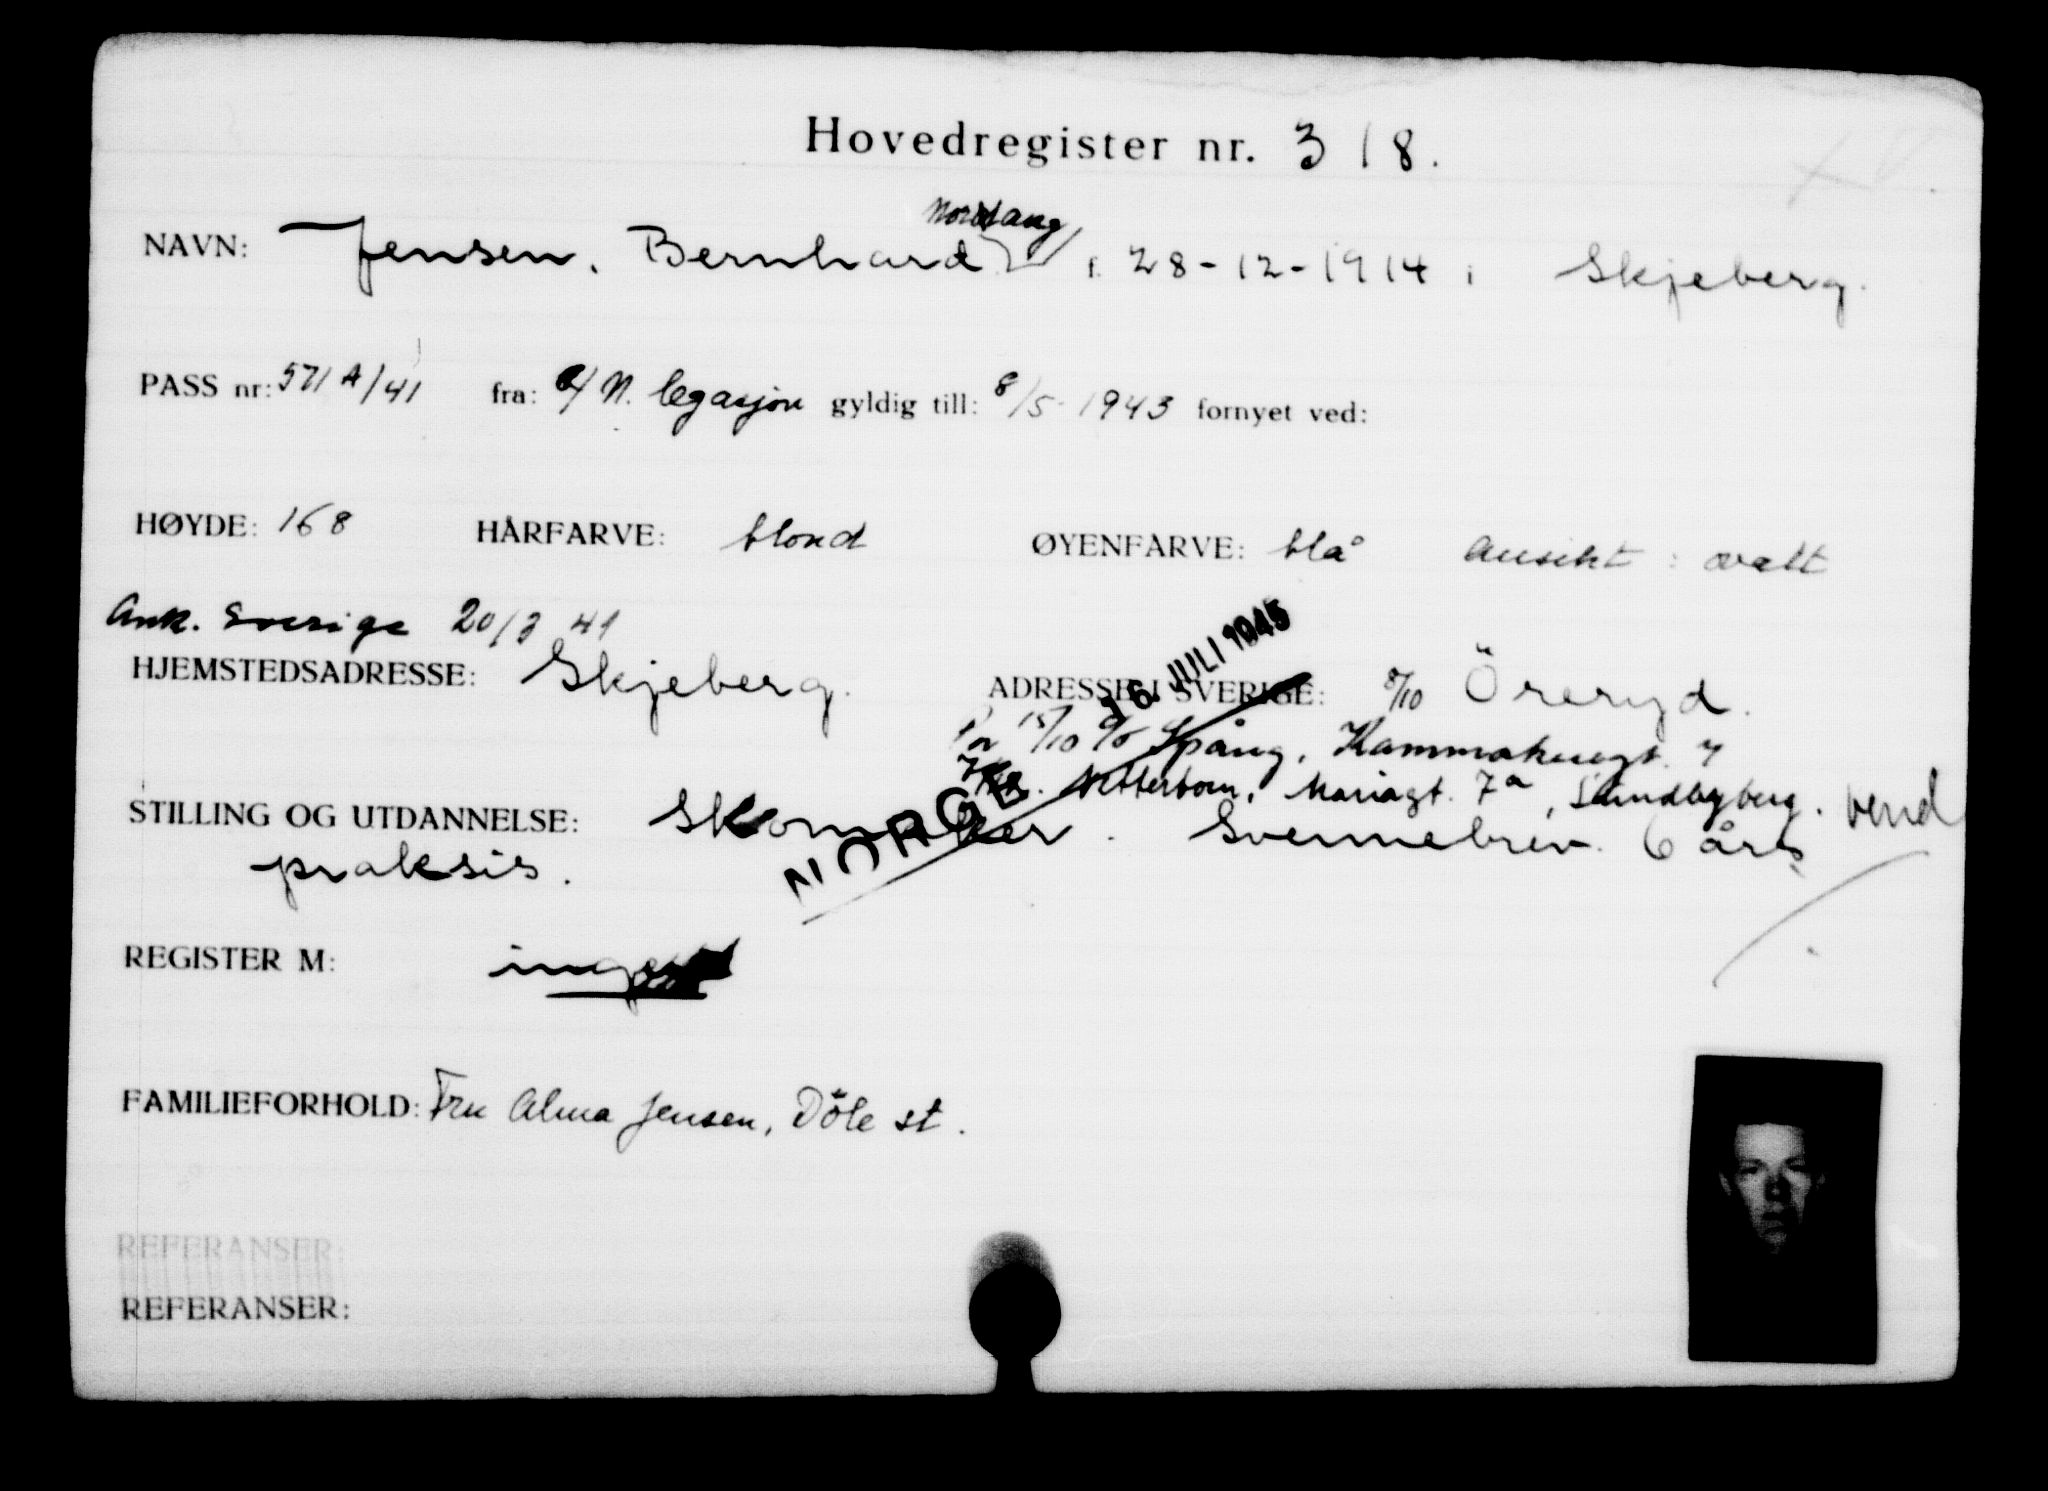 Hovedregister nr. 318.
Nordtang
NAVN: Jensen, Bernhard f. 28-12-1914 i Skjeberg.
PASS nr: 571 A/41 fra: N. legasjon gyldig till: 8/5-1943 fornyet ved:
HØYDE: 168 HÅRFARVE: blond ØYENFARVE: blå Ansikt: ovalt
Ank. Sverige 20/3 41
16. JULI 1945
HJEMSTEDSADRESSE: Skjeberg. ADRESSE I SVERIGE: 8/10 Öreryd.
15/10 c/o Spång, Kammakaregt. 7
Mariagt. 7a, Sundbyberg. Vend
NORGE
STILLING OG UTDANNELSE: Skomaker. Svennebrev. 6 års
praksis.
REGISTER M: ingen
FAMILIEFORHOLD: Fru Alma Jensen, Döle st.
REFERANSER:
REFERANSER: